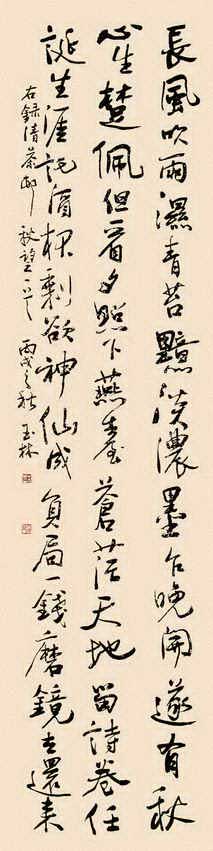 長風吹雨濕青苔黯淡濃墨乍晚開遂有秋
心生楚佩但看夕照下燕臺蒼茫天地留詩卷任
誕生涯託酒杯剩欲神仙成負局一錢磨鏡去還來
右録清 秋望 丙戌之秋 玉林